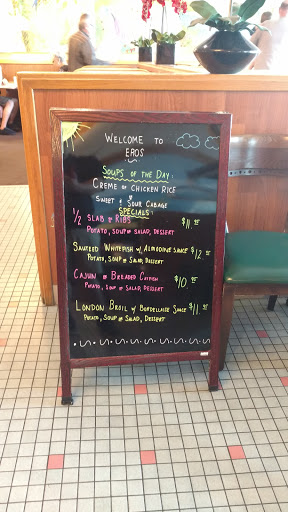 WELCOME TO
EROS
SOUPS OF THE DAY:
CREME OF CHICKEN RICE
&
SWEET & SOUR CABAGE
SPECIALS:
1/2 SLAB OF RIBS $11.95
POTATO, SOUP OR SALAD, DESSERT
SAUTEED WHITEFISH W/ ALMONDINE SAUCE $12.95
POTATO, SOUP OR SALAD, DESSERT
CAJUN OR BREADED CATFISH $10.95
POTATO, SOUP OR SALAD, DESSERT
LONDON BROIL W/ BORDELLAISE SAUCE $11.95
POTATO, SOUP OR SALAD, DESSERT